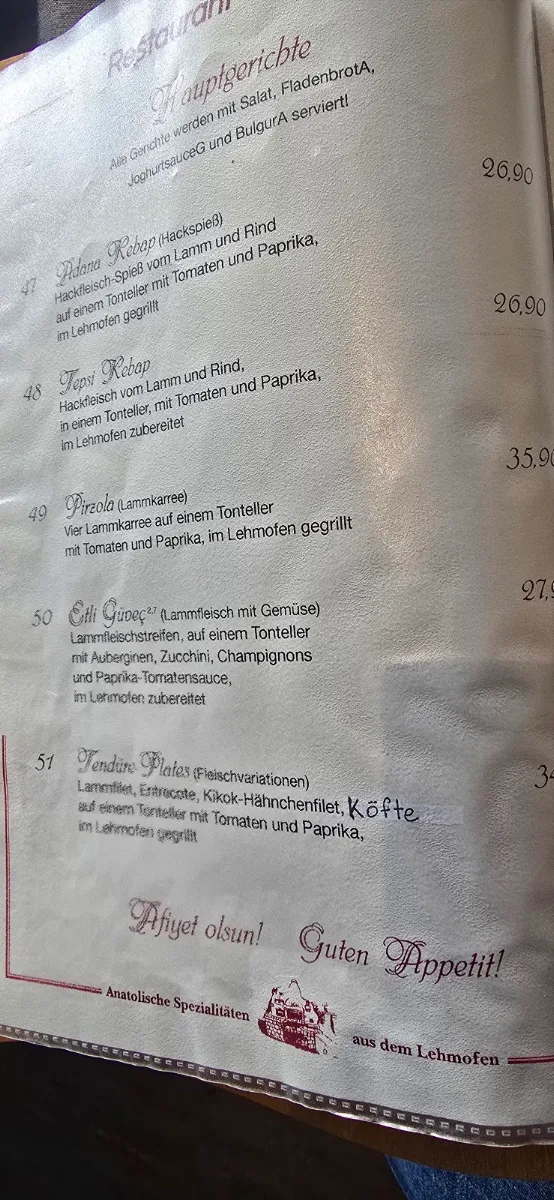 Restaurant
Hauptgerichte
Alle Gerichte werden mit Salat, FladenbrotA,
JoghurtsauceG und BulgurA serviert!
26,90
47 Adana Kebap (Hackspieß)
Hackfleisch-Spieß vom Lamm und Rind
auf einem Tonteller mit Tomaten und Paprika,
im Lehmofen gegrillt
26,90
48 Tepsi Kebap
Hackfleisch vom Lamm und Rind,
in einem Tonteller, mit Tomaten und Paprika,
im Lehmofen zubereitet
35,90
49 Pirzola (Lammkarree)
Vier Lammkarree auf einem Tonteller
mit Tomaten und Paprika, im Lehmofen gegrillt
27,9
50 Etli Güveç2,7 (Lammfleisch mit Gemüse)
Lammfleischstreifen, auf einem Tonteller
mit Auberginen, Zucchini, Champignons
und Paprika-Tomatensauce,
im Lehmofen zubereitet
34
51 Tendüre Plates (Fleischvariationen)
Lammfilet, Entrecote, Kikok-Hähnchenfilet, Köfte
auf einem Tonteller mit Tomaten und Paprika,
im Lehmofen gegrillt
Afiyet olsun! Guten Appetit!
Anatolische Spezialitäten aus dem Lehmofen